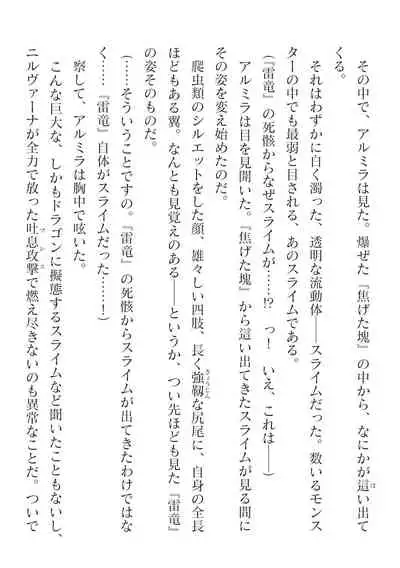 その中で、アルミラは見た。爆ぜた『焦げた塊』の中から、なにかが這い出て
くる。
それはわずかに白く濁った、透明な流動体――スライムだった。数いるモンス
ターの中でも最弱と目される、あのスライムである。
(『雷竜』の死骸からなぜスライムが……!? っ! いえ、これは――)
アルミラは目を見開いた。『焦げた塊』から這い出てきたスライムが見る間に
その姿を変え始めたのだ。
爬虫類のシルエットをした顔、雄々しい四肢、長く強靭な尻尾に、自身の全長
ほどもある翼。なんとも見覚えのある――というか、つい先ほども見た『雷竜』
の姿そのものだ。
(……そういうことですの。『雷竜』の死骸からスライムが出てきたわけではな
く……『雷竜』自体がスライムだった……!)
察して、アルミラは胸中で呟いた。
こんな巨大な、しかもドラゴンに擬態するスライムなど聞いたこともないし、
ニルヴァーナが全力で放った吐息攻撃で燃え尽きないのも異常なことだ。ついで